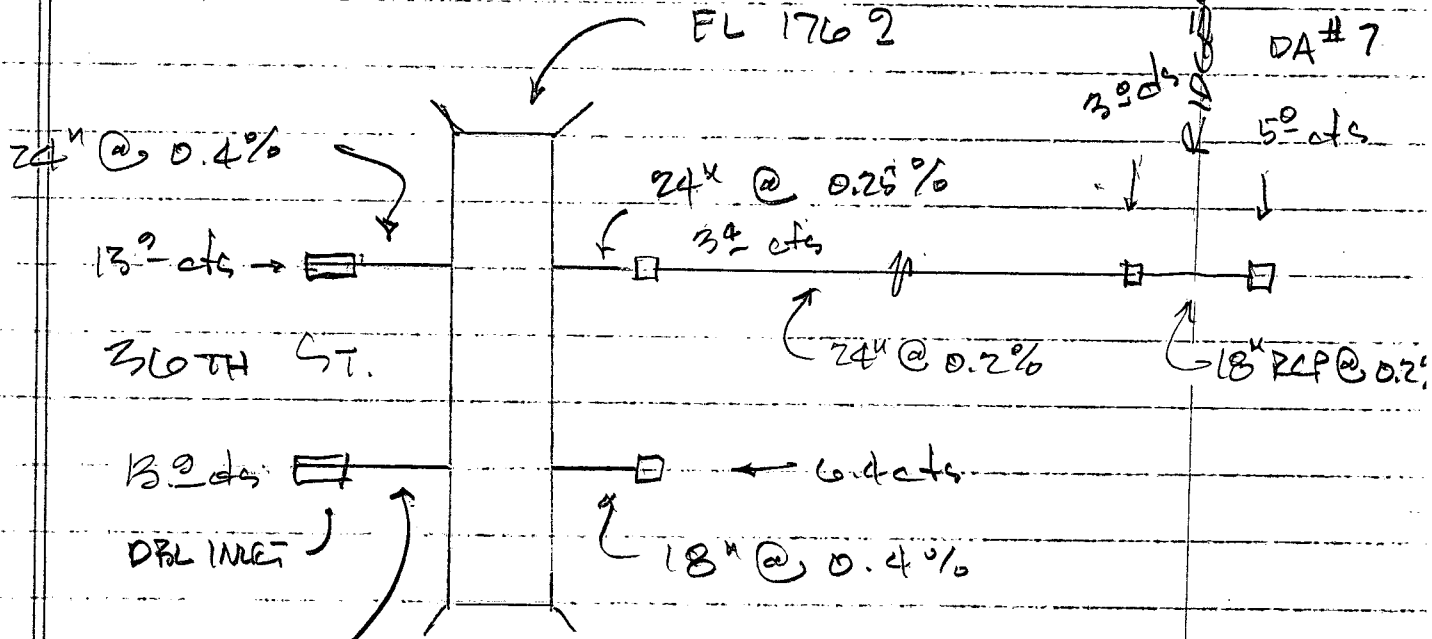 EL 176 2
DA # 7
3 0 cfs
RIDGE
5 0 cfs
24" @ 0.4%
24" @ 0.25%
13 0 cfs
3 4 cfs
36TH ST.
24" @ 0.2%
18" RCP @ 0.2%
13 0 cfs
6.4 cfs
DBL INLET
18" @ 0.4%